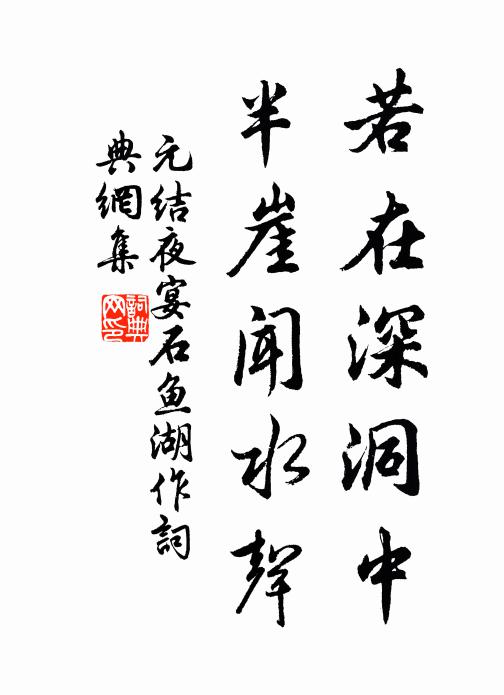 若在深洞中
半崖聞水聲
元结夜宴石鱼湖作詞
典網集
詞典
网印